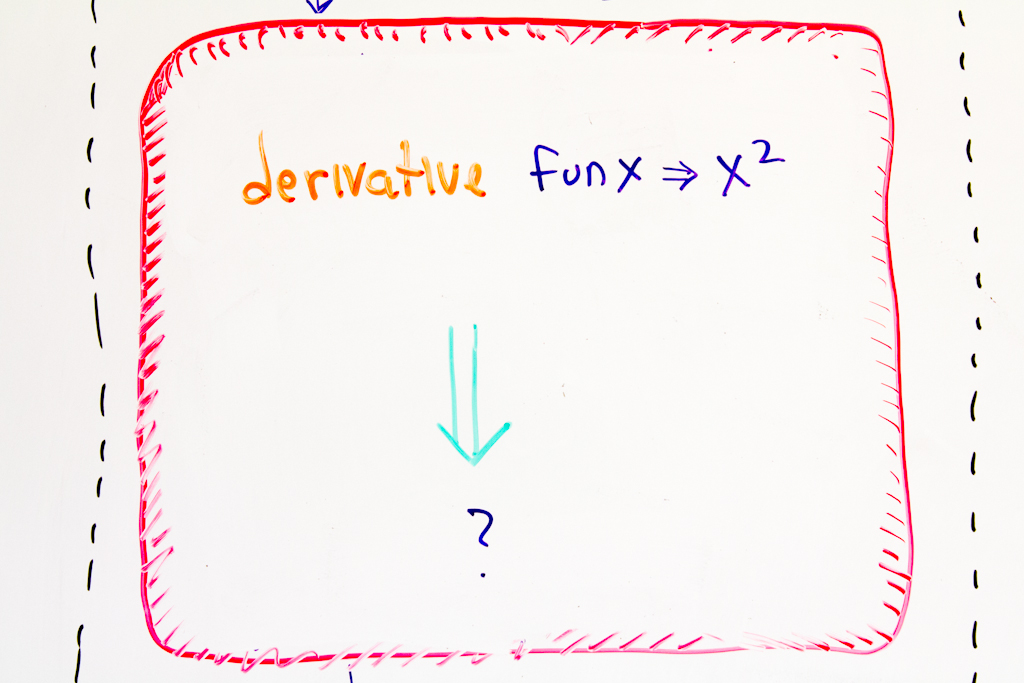 derivative fun x ⇒ x²
?